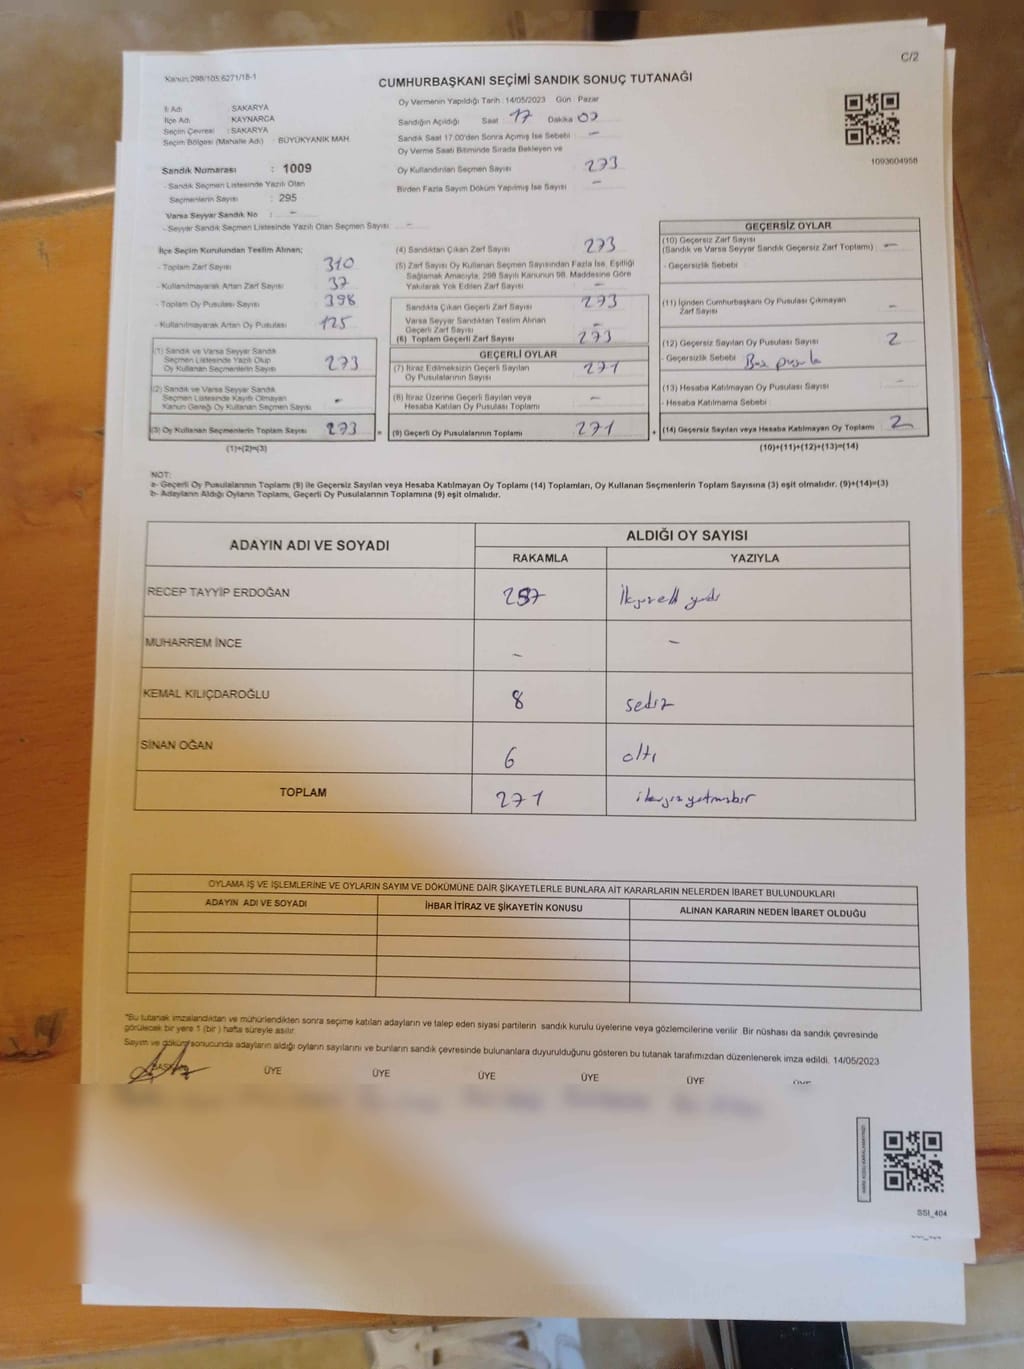 C/2
Kanun:298/105;6271/18-1
CUMHURBAŞKANI SEÇİMİ SANDIK SONUÇ TUTANAĞI
İl Adı : SAKARYA
İlçe Adı : KAYNARCA
Seçim Çevresi : SAKARYA
Seçim Bölgesi (Mahalle Adı) : BÜYÜKYANIK MAH.
Sandık Numarası : 1009
- Sandık Seçmen Listesinde Yazılı Olan
Seçmenlerin Sayısı : 295
Varsa Seyyar Sandık No : -
- Seyyar Sandık Seçmen Listesinde Yazılı Olan Seçmen Sayısı -
Oy Vermenin Yapıldığı Tarih : 14/05/2023 Gün : Pazar
Sandığın Açıldığı Saat 17 Dakika 00
Sandık Saat 17.00'den Sonra Açımış İse Sebebi : -
Oy Verme Saati Bitiminde Sırada Bekleyen ve
Oy Kullandırılan Seçmen Sayısı 273
Birden Fazla Sayım Döküm Yapılmış İse Sayısı -
1093604958
İlçe Seçim Kurulundan Teslim Alınan;
- Toplam Zarf Sayısı 310
- Kullanılmayarak Artan Zarf Sayısı 37
- Toplam Oy Pusulası Sayısı 398
- Kullanılmayarak Artan Oy Pusulası 125
(1) Sandık ve Varsa Seyyar Sandık
Seçmen Listesinde Yazılı Olup
Oy Kullanan Seçmenlerin Sayısı 273
(2) Sandık ve Varsa Seyyar Sandık
Seçmen Listesinde Kayıtlı Olmayan
Kanun Gereği Oy Kullanan Seçmen Sayısı -
(3) Oy Kullanan Seçmenlerin Toplam Sayısı 273 =
(1)+(2)=(3)
(4) Sandıktan Çıkan Zarf Sayısı 273
(5) Zarf Sayısı Oy Kullanan Seçmen Sayısından Fazla İse, Eşitliği
Sağlamak Amacıyla, 298 Sayılı Kanunun 98. Maddesine Göre
Yakılarak Yok Edilen Zarf Sayısı -
Sandıkta Çıkan Geçerli Zarf Sayısı 273
Varsa Seyyar Sandıktan Teslim Alınan
Geçerli Zarf Sayısı -
(6) Toplam Geçerli Zarf Sayısı 273
GEÇERLİ OYLAR
(7) İtiraz Edilmeksizin Geçerli Sayılan
Oy Pusulalarının Sayısı 271
(8) İtiraz Üzerine Geçerli Sayılan veya
Hesaba Katılan Oy Pusulası Toplamı -
(9) Geçerli Oy Pusulalarının Toplamı 271 +
GEÇERSİZ OYLAR
(10) Geçersiz Zarf Sayısı
(Sandık ve Varsa Seyyar Sandık Geçersiz Zarf Toplamı) -
- Geçersizlik Sebebi :
(11) İçinden Cumhurbaşkanı Oy Pusulası Çıkmayan
Zarf Sayısı -
(12) Geçersiz Sayılan Oy Pusulası Sayısı 2
- Geçersizlik Sebebi : Boş pusula
(13) Hesaba Katılmayan Oy Pusulası Sayısı -
- Hesaba Katılmama Sebebi :
(14) Geçersiz Sayılan veya Hesaba Katılmayan Oy Toplamı 2
(10)+(11)+(12)+(13)=(14)
NOT:
a- Geçerli Oy Pusulalarının Toplamı (9) ile Geçersiz Sayılan veya Hesaba Katılmayan Oy Toplamı (14) Toplamları, Oy Kullanan Seçmenlerin Toplam Sayısına (3) eşit olmalıdır. (9)+(14)=(3)
b- Adayların Aldığı Oyların Toplamı, Geçerli Oy Pusulalarının Toplamına (9) eşit olmalıdır.
ADAYIN ADI VE SOYADI
ALDIĞI OY SAYISI
RAKAMLA YAZIYLA
RECEP TAYYİP ERDOĞAN 257
MUHARREM İNCE - -
KEMAL KILIÇDAROĞLU 8 sekiz
SİNAN OĞAN 6 altı
TOPLAM 271 ikiyüzyetmişbir
OYLAMA İŞ VE İŞLEMLERİNE VE OYLARIN SAYIM VE DÖKÜMÜNE DAİR ŞİKAYETLERLE BUNLARA AİT KARARLARIN NELERDEN İBARET BULUNDUKLARI
ADAYIN ADI VE SOYADI İHBAR İTİRAZ VE ŞİKAYETİN KONUSU ALINAN KARARIN NEDEN İBARET OLDUĞU
"Bu tutanak imzalandıktan ve mühürlendikten sonra seçime katılan adayların ve talep eden siyasi partilerin sandık kurulu üyelerine veya gözlemcilerine verilir. Bir nüshası da sandık çevresinde
görülecek bir yere 1 (bir) hafta süreyle asılır.
Sayım ve döküm sonucunda adayların aldığı oyların sayılarını ve bunların sandık çevresinde bulunanlara duyurulduğunu gösteren bu tutanak tarafımızdan düzenlenerek imza edildi. 14/05/2023
BAŞKAN ÜYE ÜYE ÜYE ÜYE ÜYE ÜYE
SSI_404